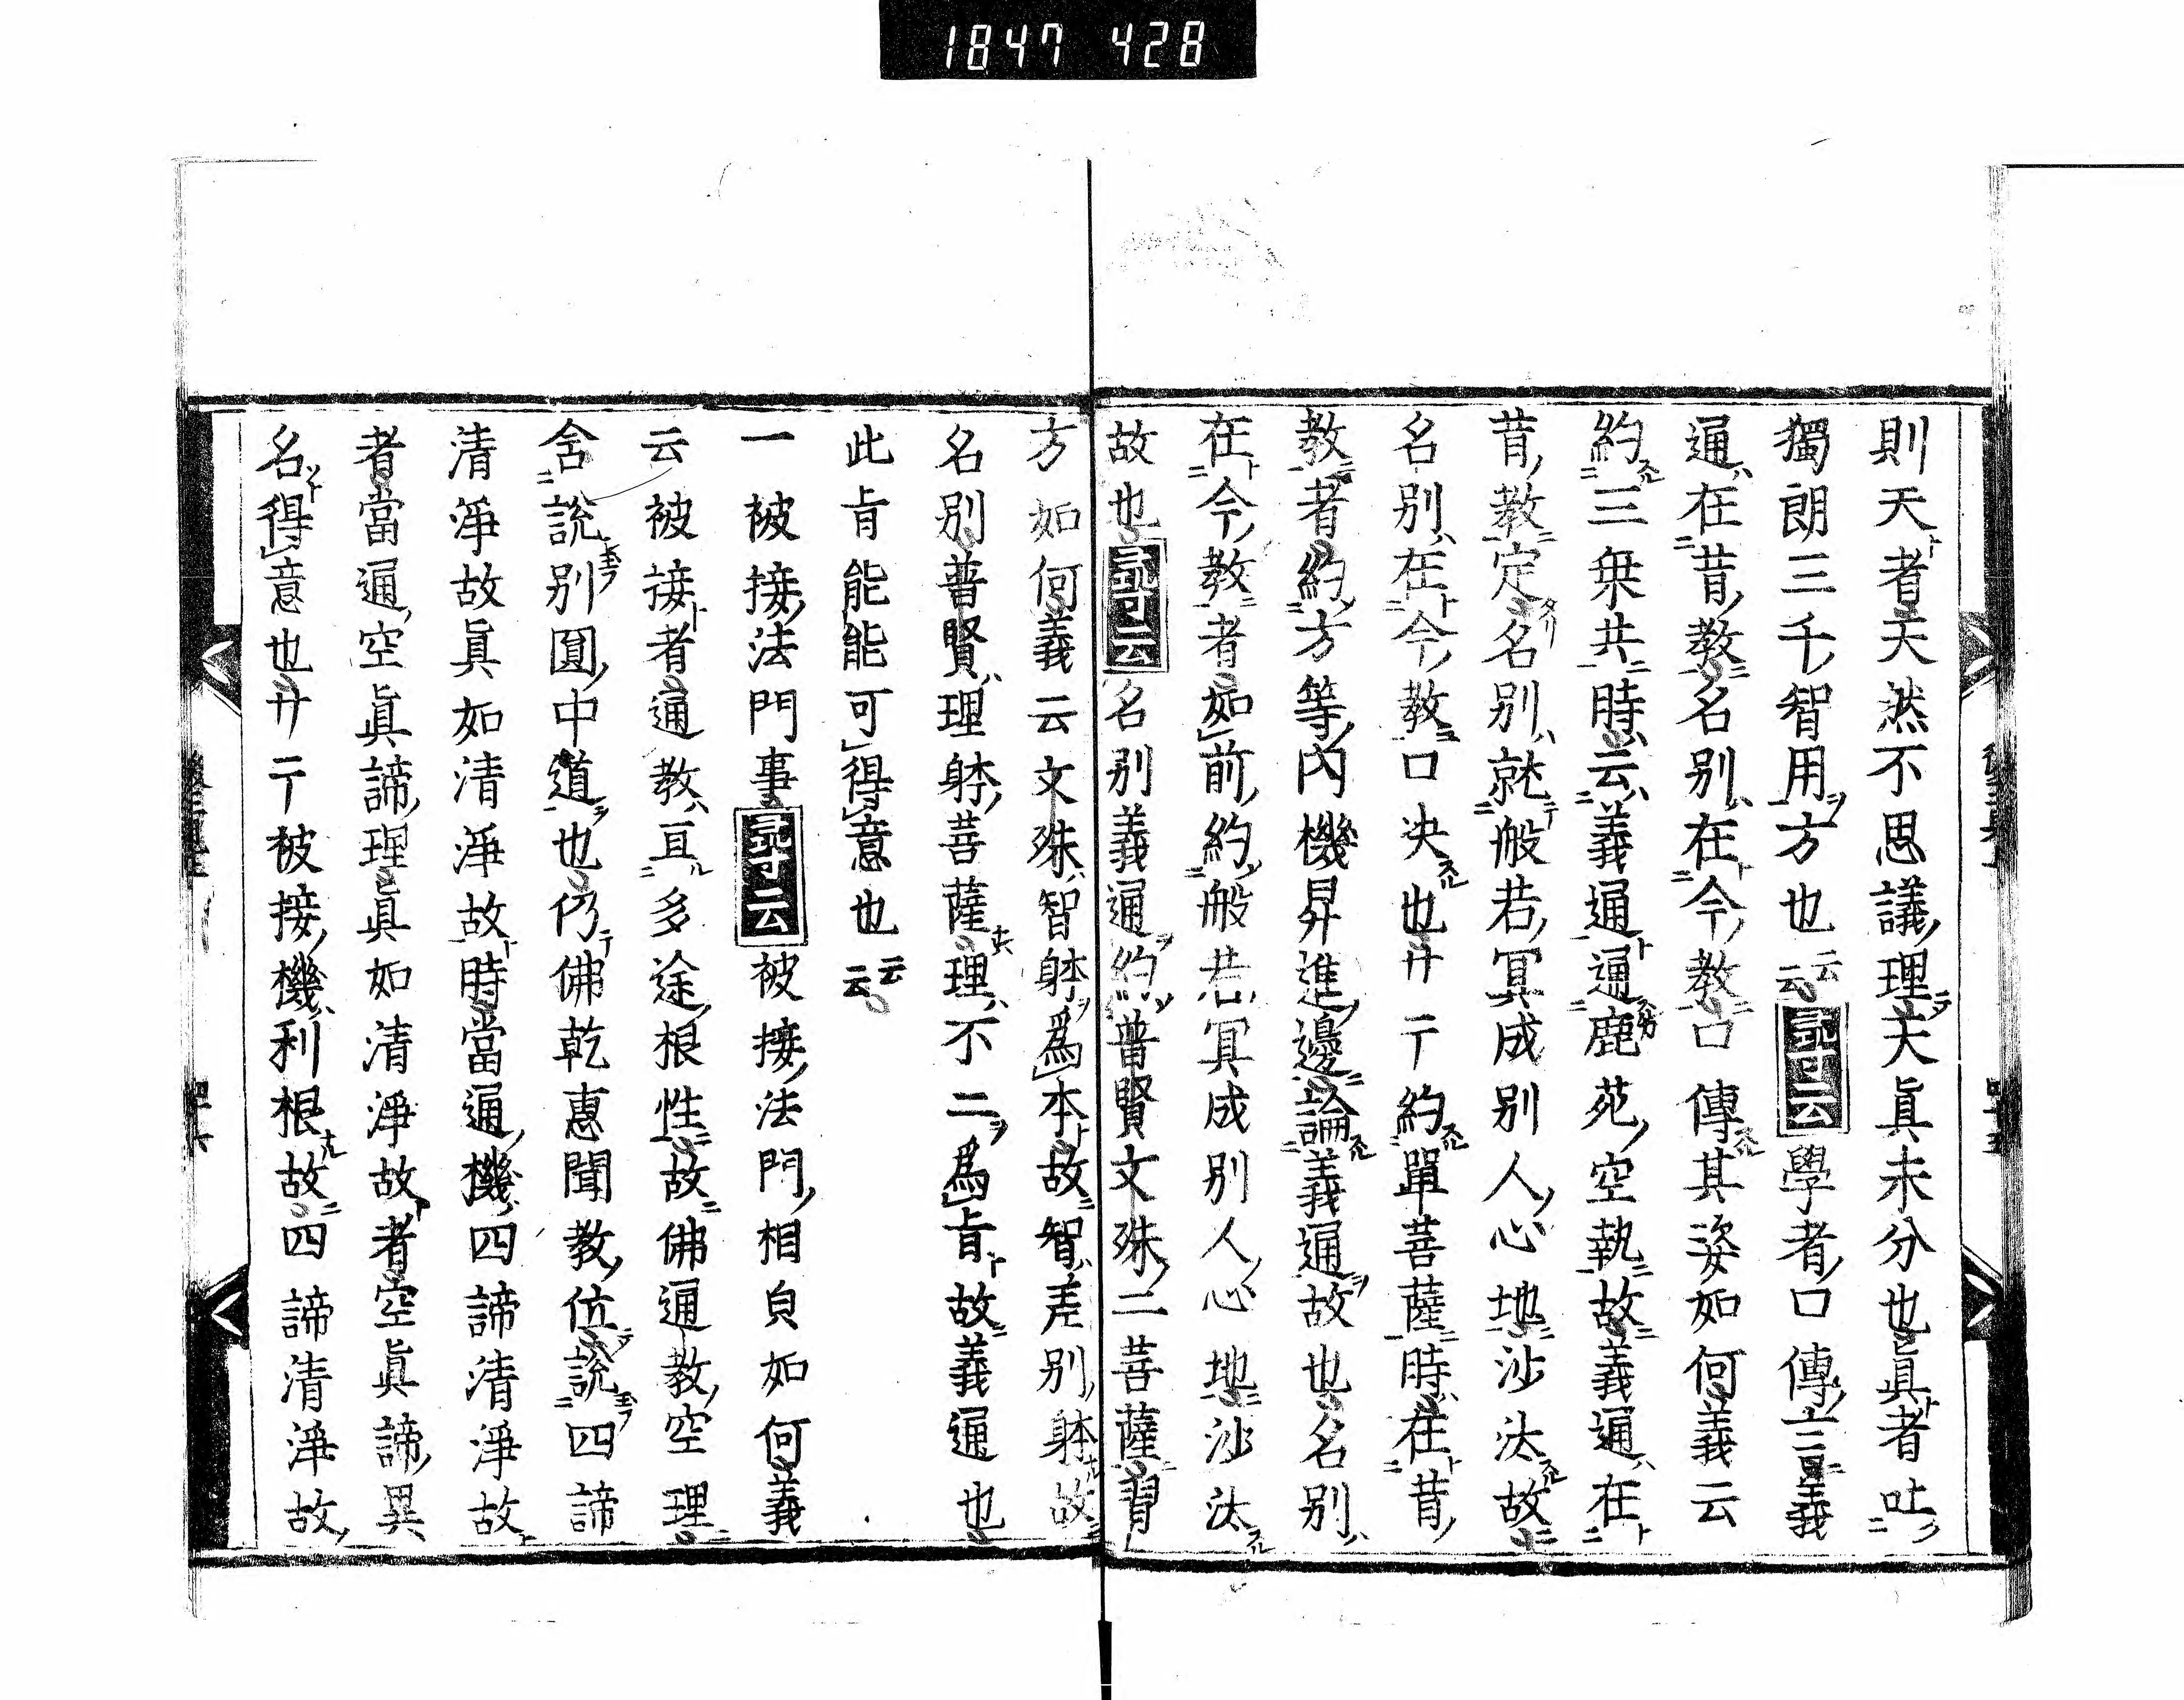 1847 428
則天者天然不思議理大眞未分也眞者吐
獨朗三千智用方也云云尋云學者口傳上三重義
通在昔教名別在今教口傳其姿如何義云
約三乗共時云義通通鹿苑空執故義通在
昔教定名別就般若冥成別人心地沙汰故
名別在今教口决也廾〒約單菩薩時在昔
教者約方等內機昇進邊論義通故也名別
在今教者如前約般若冥成別人心地沙汰
故也尋云名別義通約普賢文殊二菩薩習
方如何義云文殊智躰爲本故智差別躰故
名別普賢理躰菩薩理不二爲㫖故義通也
此㫖能能可得意也云云
一被接法門事尋云被接法門相貟如何義
云被接者通教亘多途根性故佛通教空理
含說別圓中道也仍佛乾惠聞教位說四諦
清淨故眞如清淨故時當通機四諦清淨故
者當通空眞諦理眞如清淨故者空眞諦異
名得意也廾〒被接機利根故四諦清淨故